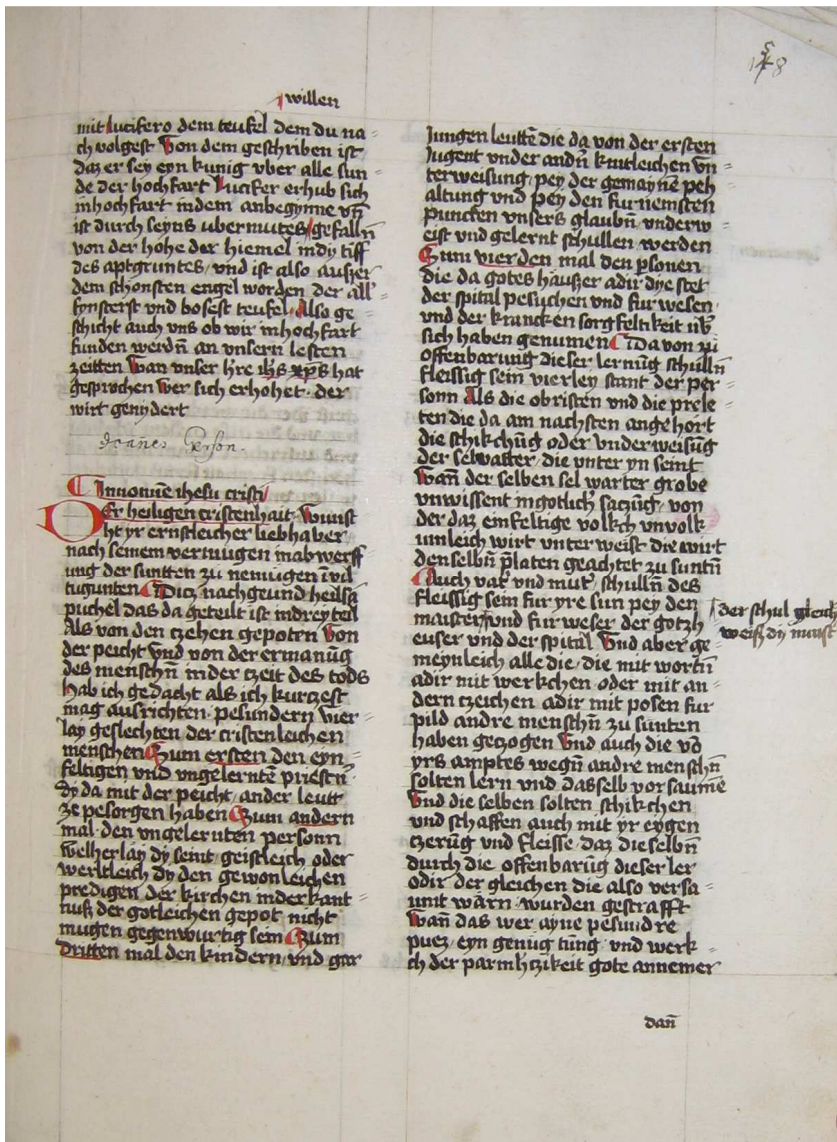 148
willen
mit lucifero dem teufel dem du na=
ch volgest Von dem geschriben ist
daz er sey eyn kunig vber alle sun=
de der hochfart Lucifer erhub sich
in hochfart in dem anbegynne vn̄
ist durch seyns ubermutes gefalln̄
von der hohe der hiemel in dy tiff
des aptgruntes und ist also ausser
dem schonsten engel worden der all
fynsterst vnd bosest teufel Also ge=
schicht auch vns ob wir in hochfart
funden werdn̄ an vnsern lesten
zeitten Wan vnser h're ih̄s xp̄s hat
gesprochen wer sich erhohet der
wirt genydert
Joannes Gerson.
In nomine ihesu cristi
Der heiligen cristenhait Wunst
ht yr ernstleicher liebhaber
nach seinem vermugen in abwerff=
ung der suntten zu nemugen in vil
tugunten Ditz nachgeund heilsā
puchel das da geteilt ist in drey teil
Als von den czehen gepoten Von
der peicht vnd von der ermanūg
des menschn̄ in der czeit des tods
hab ich gedacht als ich kurczest
mag ausrichten pesundern vier=
lay geslechten der cristenleichen
menschen Zum ersten den eyn=
feltigen vnd vngelerntē priestn̄
dy da mit der peicht ander leutt
ze pesorgen haben Zum andern
mal den vngelernten personn
welherlay dy seint geistleich oder
werltleich dy den gewonleichen
predigen der kirchen in derkant=
nuß der gotleichen gepot nicht
mugen gegenwurtig sein Zum
dritten mal den kindern vnd gar
Jungen leuttē die da von der ersten
Jugent vnder andn̄ kintleichen vn̄=
terweisung pey der gemaynē peh=
altung vnd pey den furnemsten
puncten vnsers glaubn̄ vnderw=
eist vnd gelernt schullen werden
Zum vierden mal den p̄sonen
die da gotes häußer adir dye stet
der spital pesuchen vnd furwesen
vnd der krancken sorgfeltikeit vb̄
sich haben genumen Da von zu
offenbarung dieser lernūg schulln̄
fleissig sein vierley stant der per=
sonn Als die obristen vnd die prele=
ten die da am nachsten angehort
die schikchūg oder vnderweisūg
der selwarter die unter yn seint
Wan̄ der selben sel warter grobe
vnwissent in gotlich' saczūg von
der daz einfeltige volkch vnvolk=
umleich wirt vnterweist die wirt
den selbn̄ p̄laten geachtet zu suntn̄
Auch vat' vnd mut' schulln̄ des
fleissig sein fur yre sun pey den
maistern vnd furweser der gotzh=
euser vnd der spital Vnd aber ge=
meynleich alle die die mit wortn̄
adir mit werkchen oder mit an=
dern czeichen adir mit posen fur
pild andre menschn̄ zu sunten
haben geczogen Vnd auch die vō
yrs amptes wegn̄ andre menschn̄
solten lern vnd dasselb vorsaumē
Vnd die selben solten schikchen
vnd schaffen auch mit yr eygen
czerūg vnd fleisse daz die selbn̄
durch die offenbarūg dieser ler
odir der gleichen die also versa=
umt warn wurden gestrafft
Wan̄ das wer ayne pesundre
puez eyn genūgtūng vnd werk=
ch der parmh'czikeit gote annemer
der schul gleich
weiß dy munst
dan̄